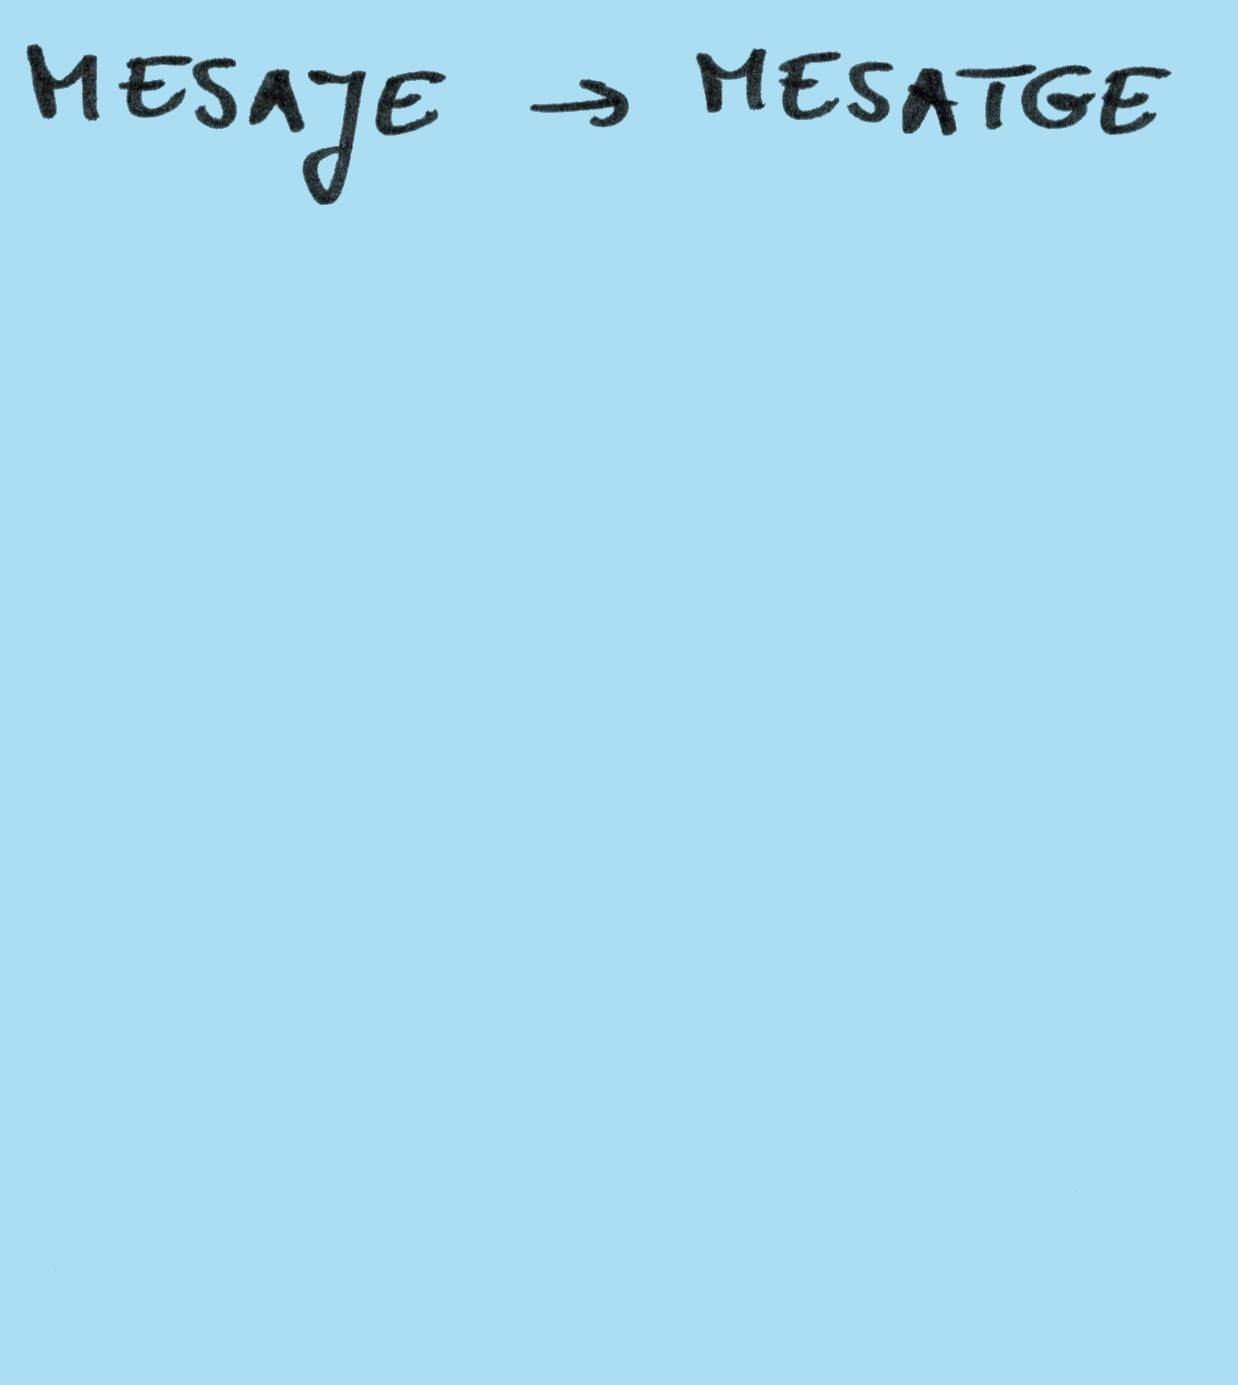 MESAJE → MESATGE